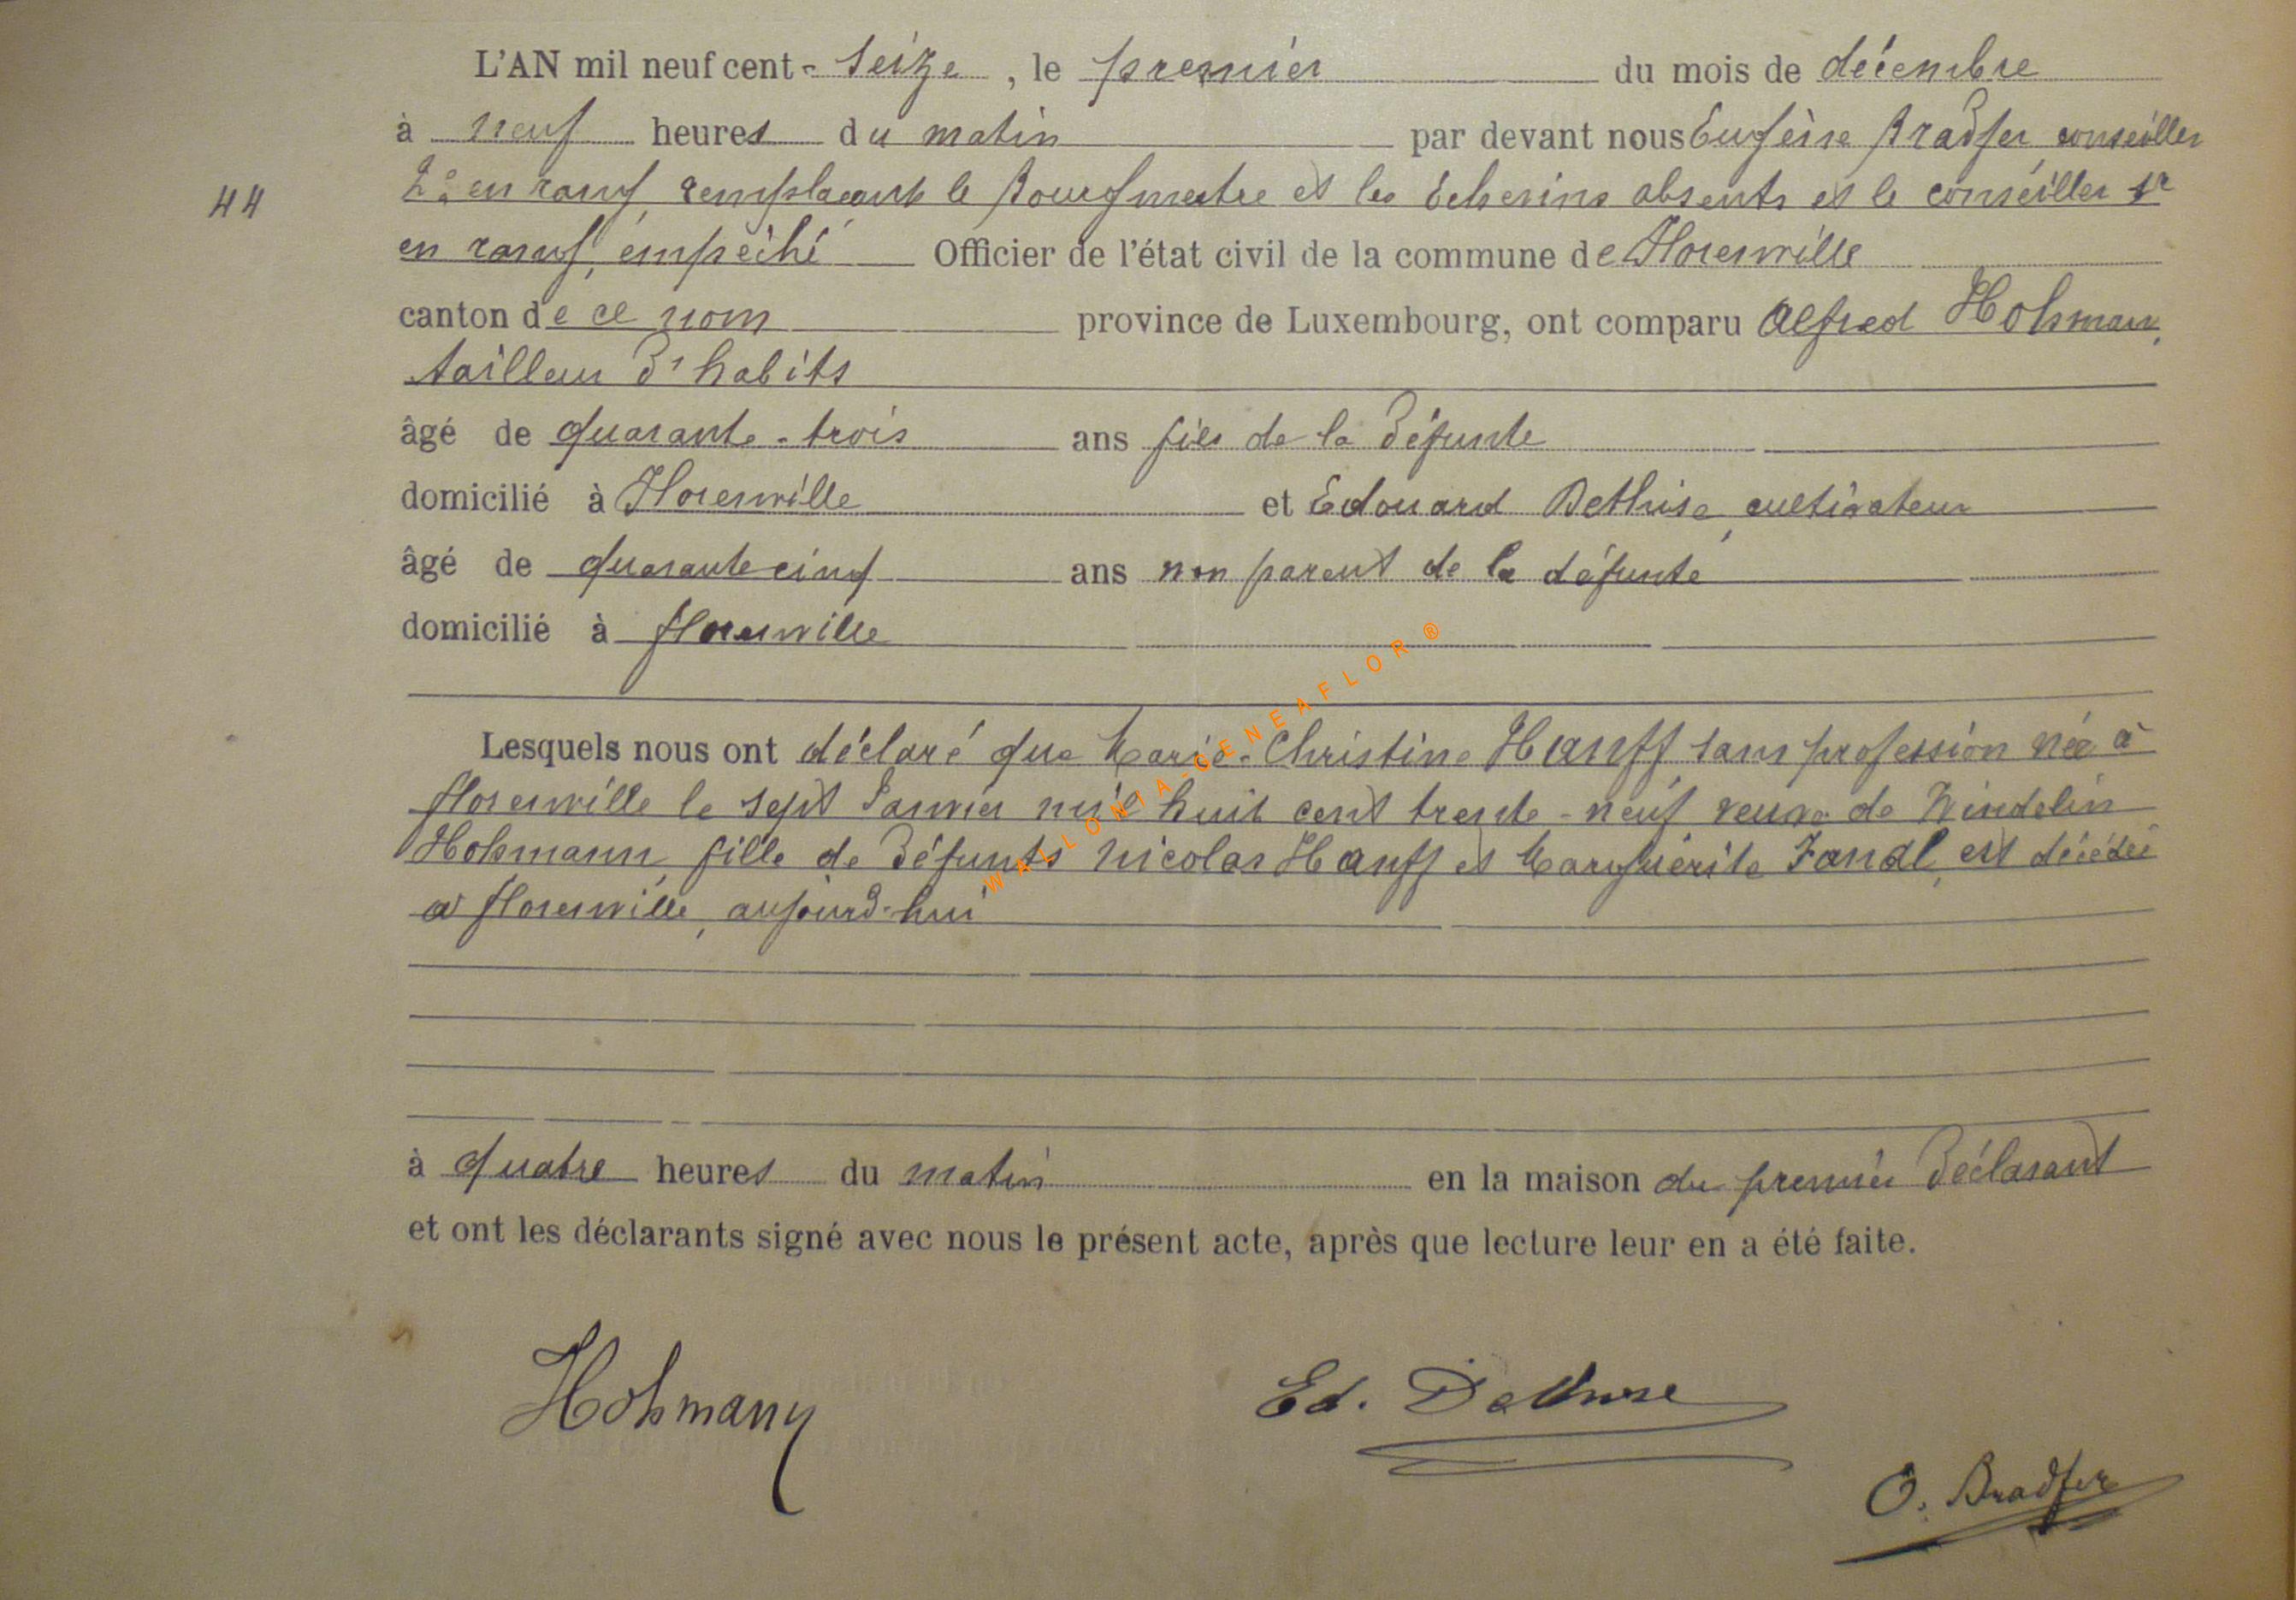 L'AN mil neuf cent - seize, le premier du mois de décembre
à neuf heures du matin par devant nous Eugène Bradfer conseiller
44 2e en rang, remplaçant le Bourgmestre et les Echevins absents et le conseiller 1r
en rang, empêché Officier de l'état civil de la commune de Florenville
canton de ce nom province de Luxembourg, ont comparu Alfred Hohmann,
tailleur d'habits
âgé de quarante-trois ans fils de la défunte
domicilié à Florenville et Edouard Dethise, cultivateur
âgé de quarante cinq ans non parent de la défunte
domicilié à florenville
Lesquels nous ont déclaré que Marie-Christine Hanff sans profession née à
florenville le sept Janvier mil huit cent trente-neuf veuve de Windelin
Hohmann, fille de défunts Nicolas Hanff et Marguérite Fandl, est décédée
a florenville, aujourd'hui
WALLONIA-GENEAFLOR ®
à quatre heures du matin en la maison du premier déclarant
et ont les déclarants signé avec nous le présent acte, après que lecture leur en a été faite.
Hohmann
Ed. Dethise
O. Bradfer